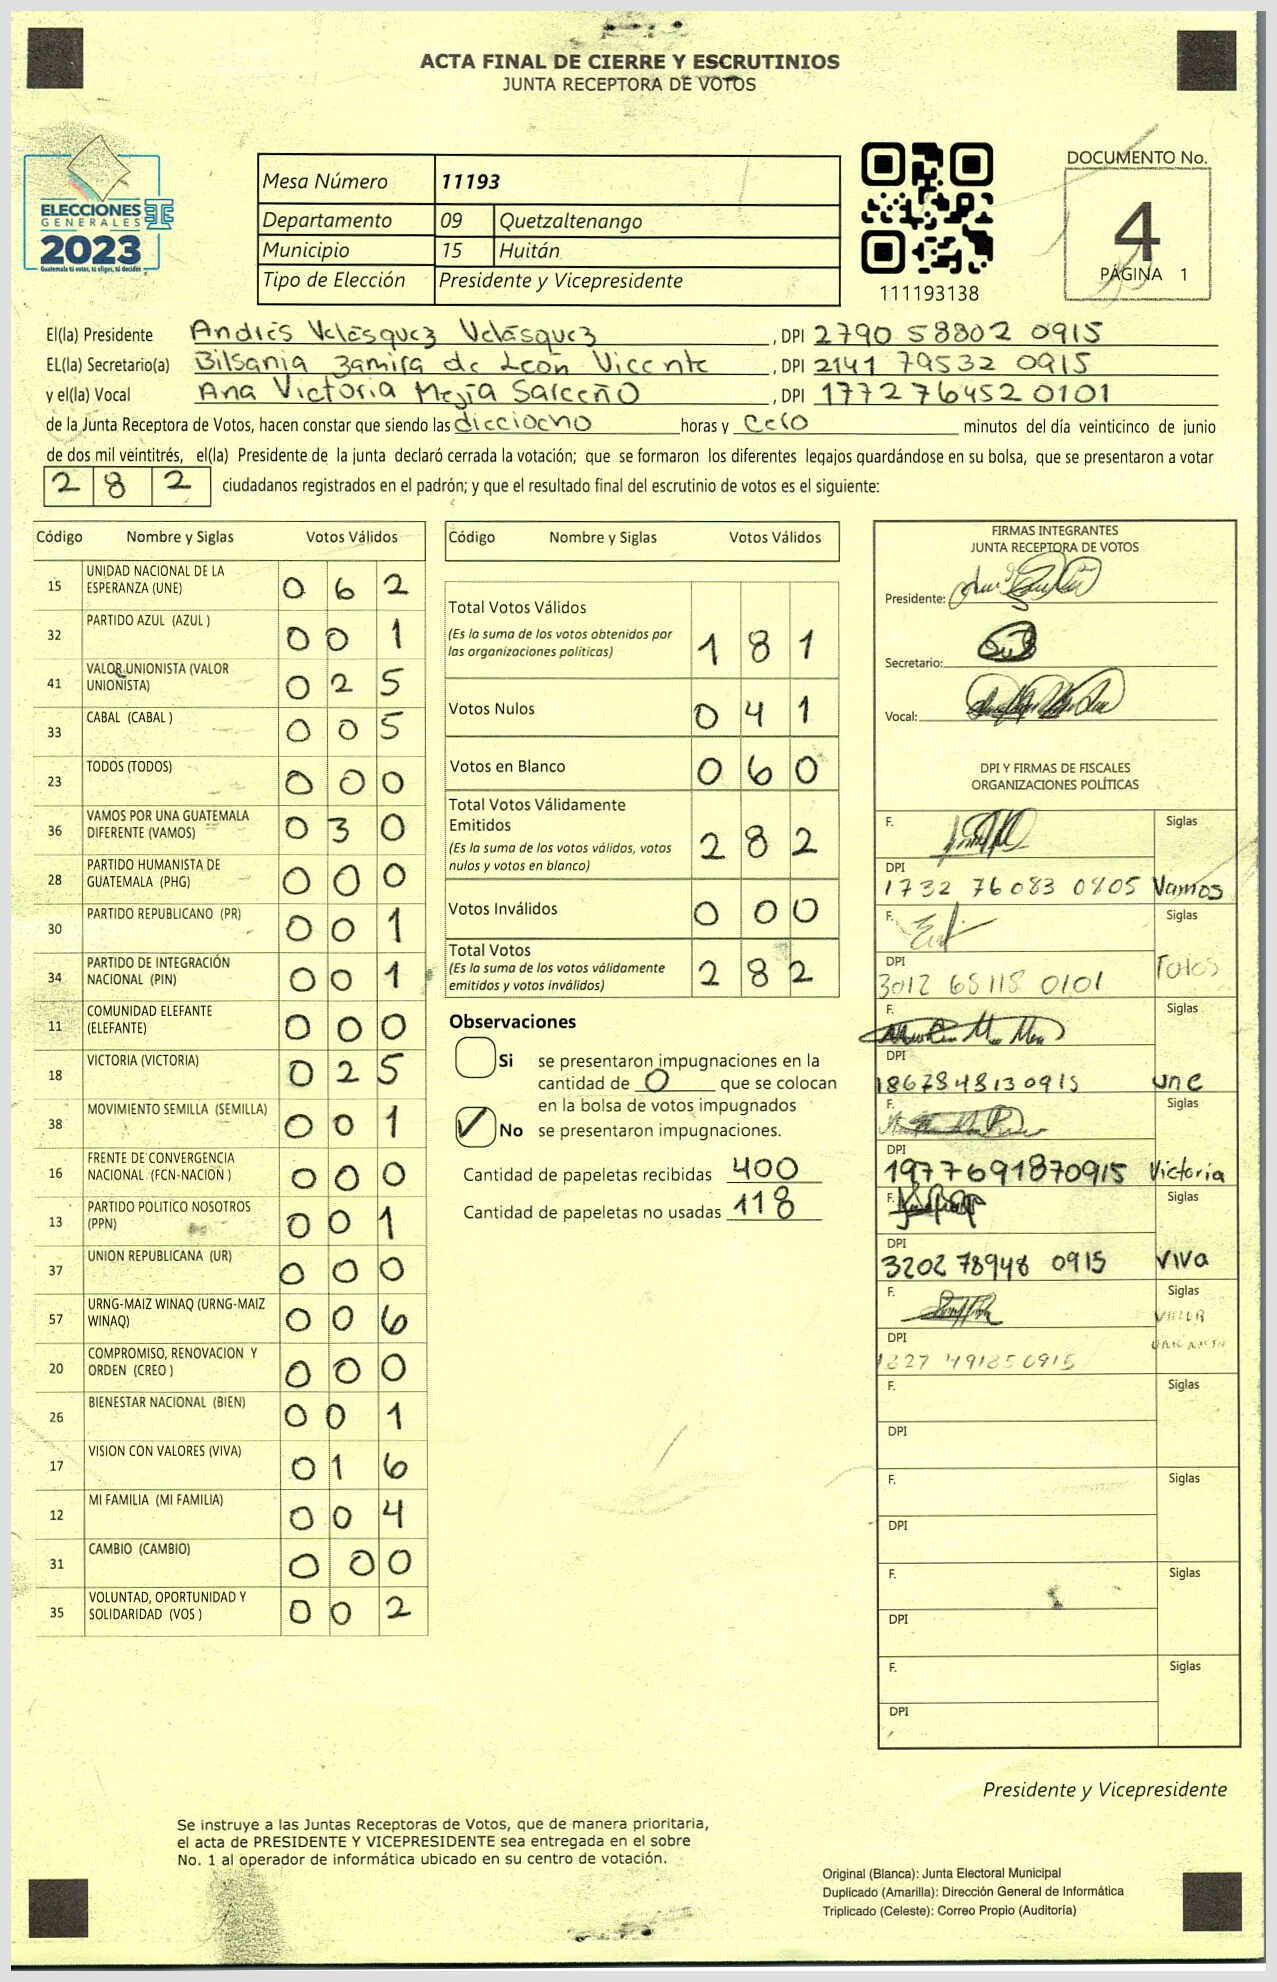 ACTA FINAL DE CIERRE Y ESCRUTINIOS
JUNTA RECEPTORA DE VOTOS
ELECCIONES
GENERALES
2023
Guatemala tú votas, tú eliges, tú decides
Mesa Número 11193
Departamento 09 Quetzaltenango
Municipio 15 Huitán
Tipo de Elección Presidente y Vicepresidente
111193138
DOCUMENTO No.
4
PÁGINA 1
El(la) Presidente Andrés Velásquez Velásquez , DPI 2790 58802 0915
EL(la) Secretario(a) Bilsania Zamira de León Vicente , DPI 2141 79532 0915
y el(la) Vocal Ana Victoria Mejía Salceño , DPI 1772 76452 0101
de la Junta Receptora de Votos, hacen constar que siendo las dicciocho horas y cero minutos del día veinticinco de junio
de dos mil veintitrés, el(la) Presidente de la junta declaró cerrada la votación; que se formaron los diferentes legajos guardándose en su bolsa, que se presentaron a votar
282 ciudadanos registrados en el padrón; y que el resultado final del escrutinio de votos es el siguiente:
Código Nombre y Siglas Votos Válidos
15 UNIDAD NACIONAL DE LA ESPERANZA (UNE) 0 6 2
32 PARTIDO AZUL (AZUL ) 0 0 1
41 VALOR UNIONISTA (VALOR UNIONISTA) 0 2 5
33 CABAL (CABAL ) 0 0 5
23 TODOS (TODOS) 0 0 0
36 VAMOS POR UNA GUATEMALA DIFERENTE (VAMOS) 0 3 0
28 PARTIDO HUMANISTA DE GUATEMALA (PHG) 0 0 0
30 PARTIDO REPUBLICANO (PR) 0 0 1
34 PARTIDO DE INTEGRACIÓN NACIONAL (PIN) 0 0 1
11 COMUNIDAD ELEFANTE (ELEFANTE) 0 0 0
18 VICTORIA (VICTORIA) 0 2 5
38 MOVIMIENTO SEMILLA (SEMILLA) 0 0 1
16 FRENTE DE CONVERGENCIA NACIONAL (FCN-NACION ) 0 0 0
13 PARTIDO POLITICO NOSOTROS (PPN) 0 0 1
37 UNION REPUBLICANA (UR) 0 0 0
57 URNG-MAIZ WINAQ (URNG-MAIZ WINAQ) 0 0 6
20 COMPROMISO, RENOVACION Y ORDEN (CREO ) 0 0 0
26 BIENESTAR NACIONAL (BIEN) 0 0 1
17 VISION CON VALORES (VIVA) 0 1 6
12 MI FAMILIA (MI FAMILIA) 0 0 4
31 CAMBIO (CAMBIO) 0 0 0
35 VOLUNTAD, OPORTUNIDAD Y SOLIDARIDAD (VOS ) 0 0 2
Código Nombre y Siglas Votos Válidos
Total Votos Válidos
(Es la suma de los votos obtenidos por
las organizaciones políticas) 1 8 1
Votos Nulos 0 4 1
Votos en Blanco 0 6 0
Total Votos Válidamente
Emitidos
(Es la suma de los votos válidos, votos
nulos y votos en blanco) 2 8 2
Votos Inválidos 0 0 0
Total Votos
(Es la suma de los votos válidamente
emitidos y votos inválidos) 2 8 2
Observaciones
Si se presentaron impugnaciones en la
cantidad de 0 que se colocan
en la bolsa de votos impugnados
No se presentaron impugnaciones.
Cantidad de papeletas recibidas 400
Cantidad de papeletas no usadas 118
FIRMAS INTEGRANTES
JUNTA RECEPTORA DE VOTOS
Presidente:
Secretario:
Vocal:
DPI Y FIRMAS DE FISCALES
ORGANIZACIONES POLÍTICAS
F. Siglas
DPI
1732 76083 0805 Vamos
F. Siglas
DPI
3012 65118 0101 Todos
F. Siglas
DPI
1867848130915 une
F. Siglas
DPI
1977691870915 Victoria
F. Siglas
DPI
3202 78948 0915 VIVA
F. Siglas
VALOR
DPI
1827 491850915
F. Siglas
DPI
F. Siglas
DPI
F. Siglas
DPI
F. Siglas
DPI
Presidente y Vicepresidente
Se instruye a las Juntas Receptoras de Votos, que de manera prioritaria,
el acta de PRESIDENTE Y VICEPRESIDENTE sea entregada en el sobre
No. 1 al operador de informática ubicado en su centro de votación.
Original (Blanca): Junta Electoral Municipal
Duplicado (Amarilla): Dirección General de Informática
Triplicado (Celeste): Correo Propio (Auditoría)